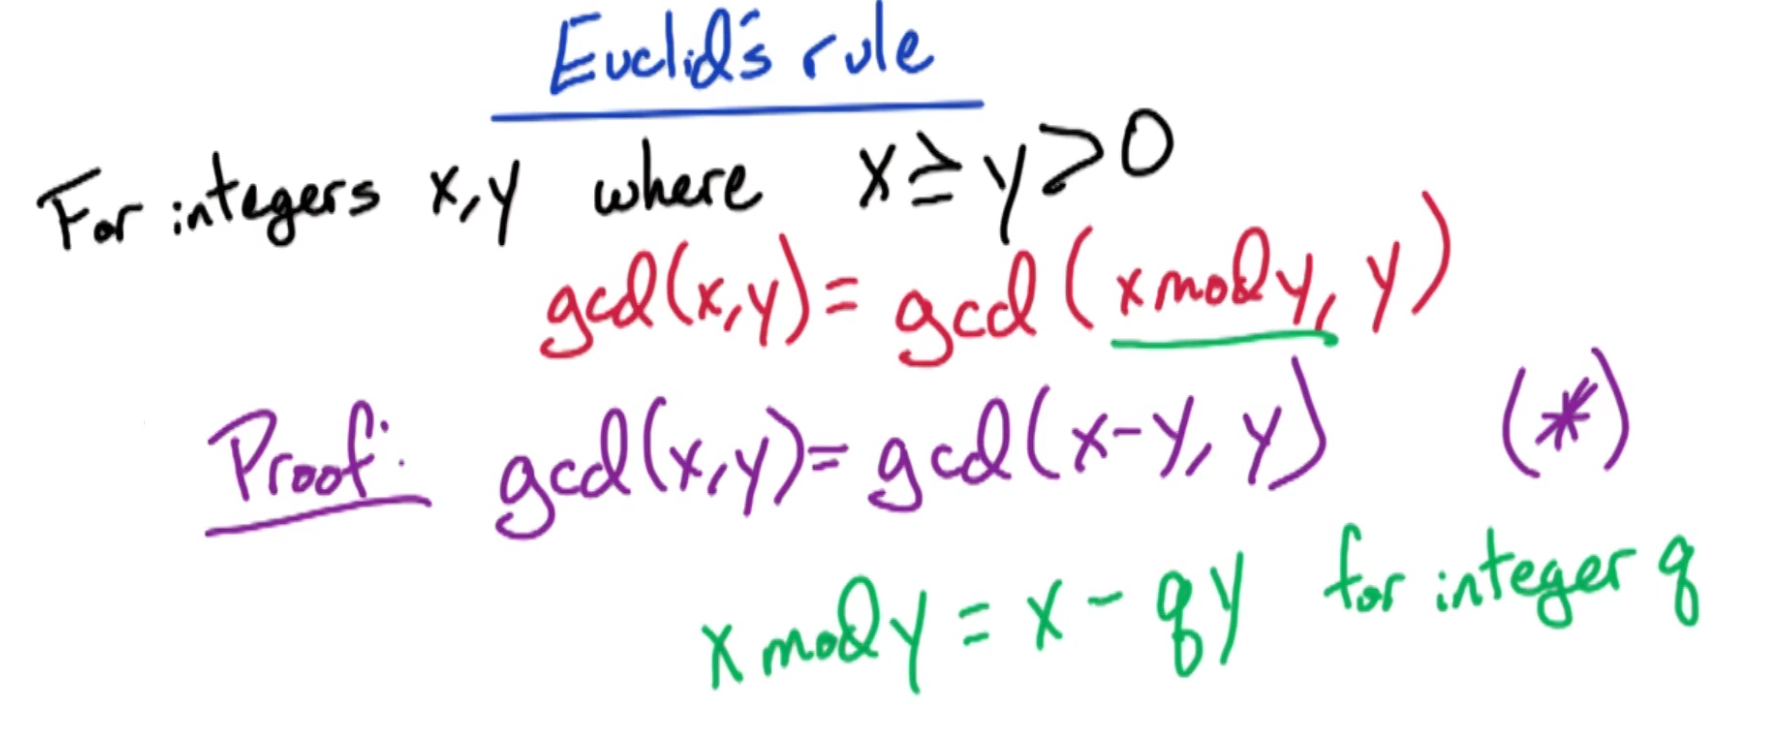 Euclid's rule
For integers x,y where x ≥ y > 0
gcd(x,y) = gcd(x mod y, y)
Proof: gcd(x,y) = gcd(x-y, y) (*)
x mod y = x - qy for integer q